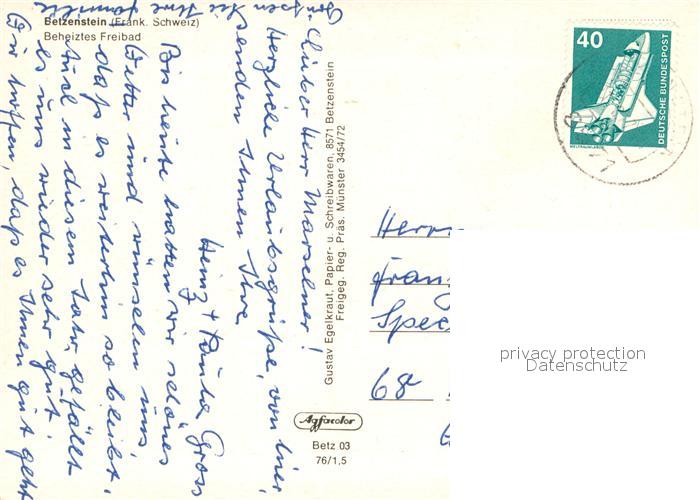 Betzenstein (Fränk. Schweiz)
Beheiztes Freibad
Lieber Herr Marselner!
Herzliche Urlaubsgrüße, von hier,
senden Ihnen Ihre
Heinz + Paula Gross
Bis heute hatten wir schönes
Wetter und wünschen uns,
daß es weiterhin so bleibt.
Auch in diesem Jahr, gefällt
es uns wieder sehr gut.
Wir hoffen, daß es Ihnen gut geht
Grüssen Sie Ihre Familie
Gustav Egelkraut, Papier- u. Schreibwaren, 8571 Betzenstein
Freigeg. Reg. Präs. Münster 3454/72
Agfacolor
Betz 03
76/1,5
40
DEUTSCHE BUNDESPOST
WELTRAUMLABOR
Herrn
68
privacy protection
Datenschutz